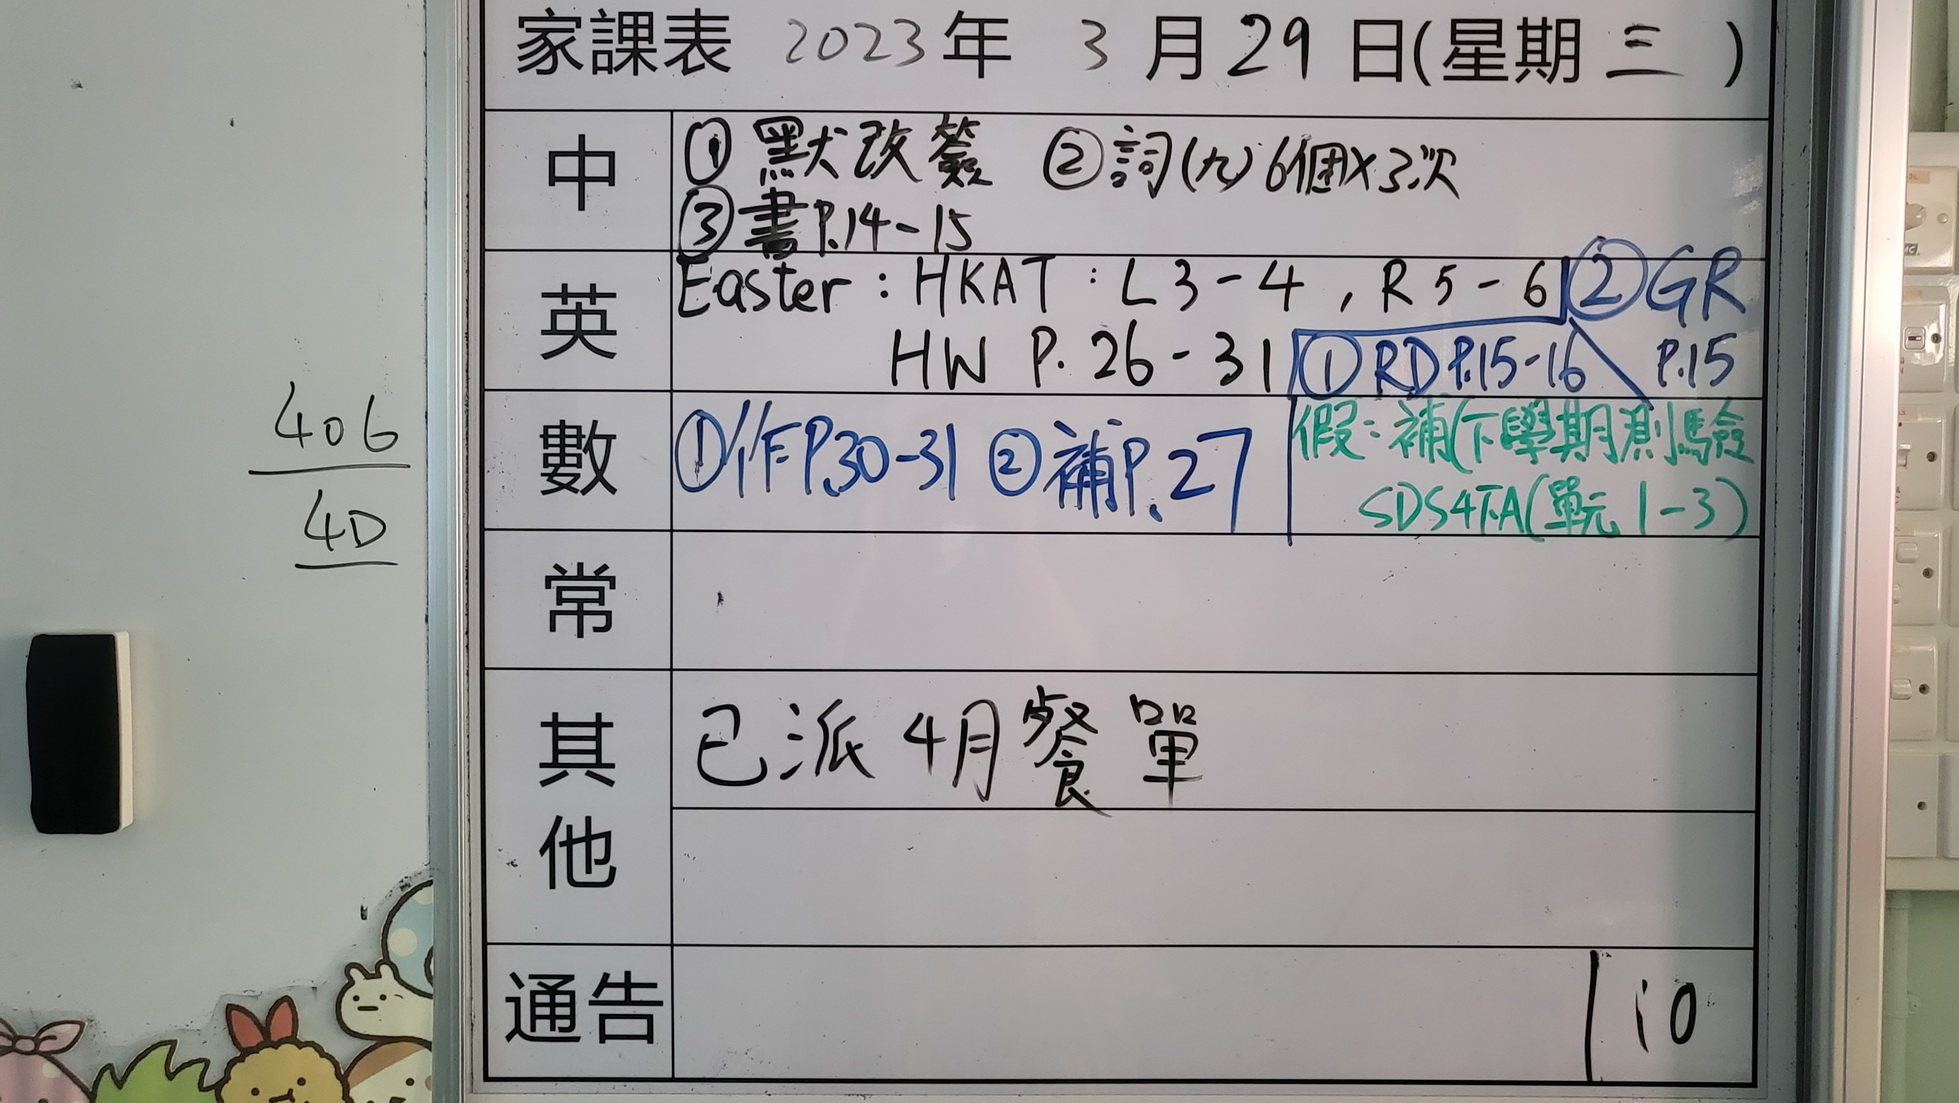 家課表 2023年 3月29日(星期三)
中
① 默改簽 ②詞(九)6個×3次
③書P.14-15
英
Easter : HKAT : L3-4 , R5-6
HW P. 26-31
①RD P.15-16
②GR
P.15
數
①作P.30-31 ②補P.27
假：補(下學期測驗
SDS4下A(單元1-3)
常
其他
已派4月餐單
通告
10
406
4D